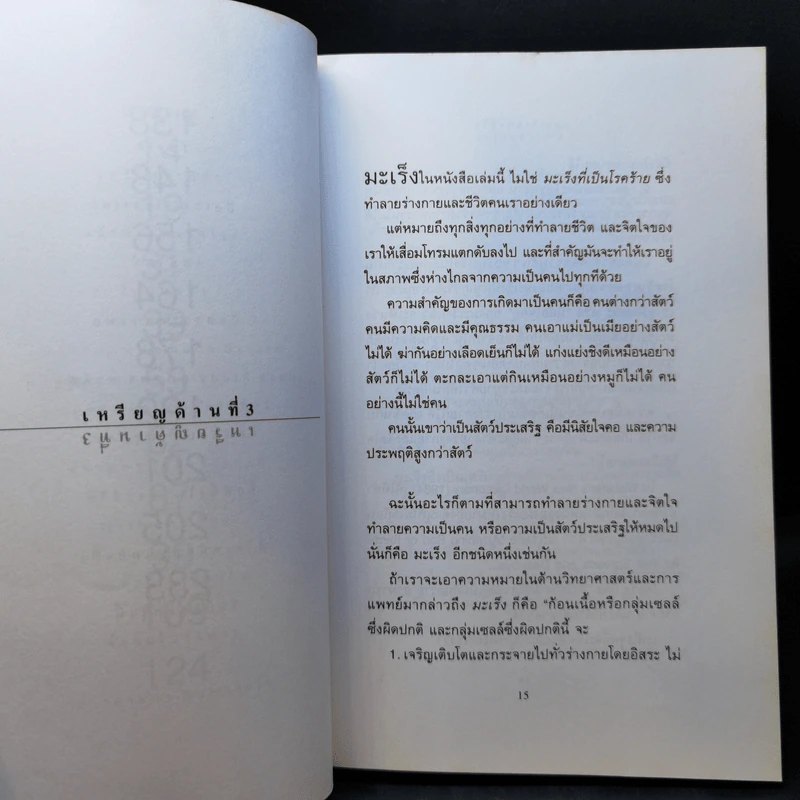 เหรียญด้านที่3
เหรียญด้านที่3
มะเร็งในหนังสือเล่มนี้ ไม่ใช่ มะเร็งที่เป็นโรคร้าย ซึ่ง
ทำลายร่างกายและชีวิตคนเราอย่างเดียว
แต่หมายถึงทุกสิ่งทุกอย่างที่ทำลายชีวิต และจิตใจของ
เราให้เสื่อมโทรมแตกดับลงไป และที่สำคัญมันจะทำให้เราอยู่
ในสภาพซึ่งห่างไกลจากความเป็นคนไปทุกทีด้วย
ความสำคัญของการเกิดมาเป็นคนก็คือ คนต่างกว่าสัตว์
คนมีความคิดและมีคุณธรรม คนเอาแม่เป็นเมียอย่างสัตว์
ไม่ได้ ฆ่ากันอย่างเลือดเย็นก็ไม่ได้ แก่งแย่งชิงดีเหมือนอย่าง
สัตว์ก็ไม่ได้ ตะกละเอาแต่กินเหมือนอย่างหมูก็ไม่ได้ คน
อย่างนี้ไม่ใช่คน
คนนั้นเขาว่าเป็นสัตว์ประเสริฐ คือมีนิสัยใจคอ และความ
ประพฤติสูงกว่าสัตว์
ฉะนั้นอะไรก็ตามที่สามารถทำลายร่างกายและจิตใจ
ทำลายความเป็นคน หรือความเป็นสัตว์ประเสริฐให้หมดไป
นั่นก็คือ มะเร็ง อีกชนิดหนึ่งเช่นกัน
ถ้าเราจะเอาความหมายในด้านวิทยาศาสตร์และการ
แพทย์มากล่าวถึง มะเร็ง ก็คือ "ก้อนเนื้อหรือกลุ่มเซลล์
ซึ่งผิดปกติ และกลุ่มเซลล์ซึ่งผิดปกตินี้ จะ
1. เจริญเติบโตและกระจายไปทั่วร่างกายโดยอิสระ ไม่
15